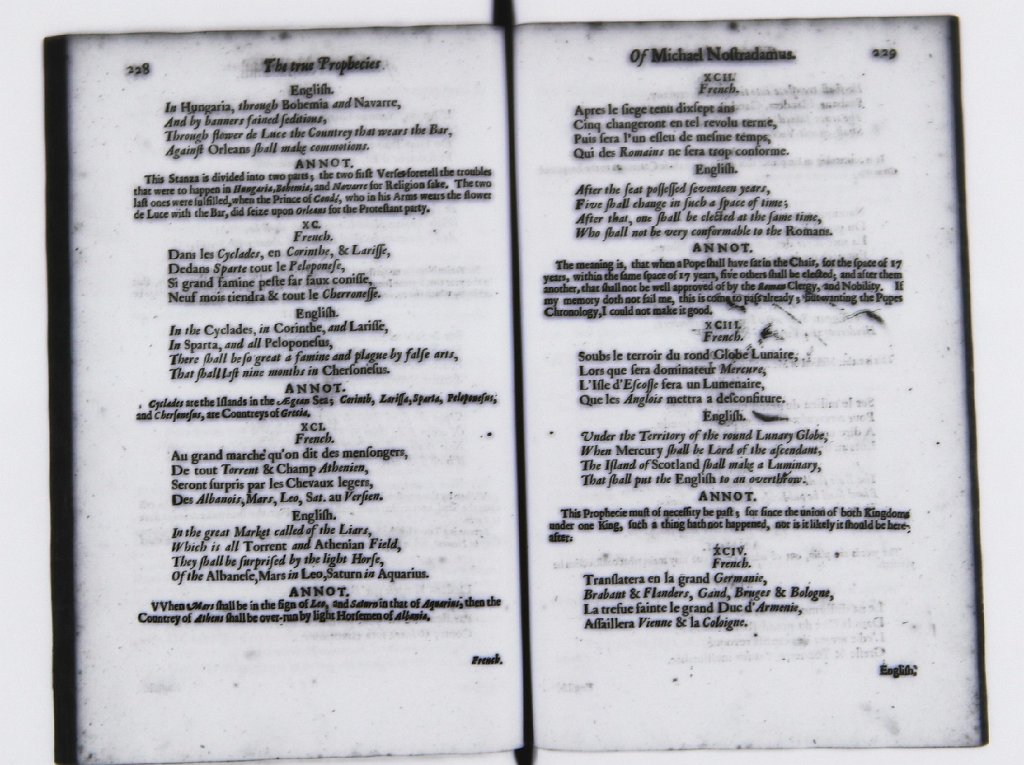 228 The true Prophecies
Engliſh.
In Hungaria, through Bohemia and Navarre,
And by banners fained ſeditions,
Through flower de Luce the Countrey that wears the Bar,
Againſt Orleans ſhall make commotions.
ANNOT.
This Stanza is divided into two parts; the two firſt Verſes foretell the troubles
that were to happen in Hungaria, Bohemia, and Navarre for Religion ſake. The two
laſt ones were fulfilled, when the Prince of Condé, who in his Arms wears the flower
de Luce with the Bar, did ſeize upon Orleans for the Proteſtant party.
XC.
French.
Dans les Cyclades, en Corinthe, & Lariſſe,
Dedans Sparte tout le Peloponeſe,
Si grand famine peſte ſar faux coniſſe,
Neuf mois tiendra & tout le Cherroneſſe.
Engliſh.
In the Cyclades, in Corinthe, and Lariſſe,
In Sparta, and all Peloponeſus,
There ſhall be ſo great a famine and plague by falſe arts,
That ſhall laſt nine months in Cherſoneſus.
ANNOT.
Cyclades are the Iſlands in the Ægean Sea; Corinth, Lariſſa, Sparta, Peloponeſus,
and Cherſoneſus, are Countreys of Grecia.
XCI.
French.
Au grand marché qu'on dit des menſongers,
De tout Torrent & Champ Athenien,
Seront ſurpris par les Chevaux legers,
Des Albanois, Mars, Leo, Sat. au Verſien.
Engliſh.
In the great Market called of the Liars,
Which is all Torrent and Athenian Field,
They ſhall be ſurpriſed by the light Horſe,
Of the Albaneſe, Mars in Leo, Saturn in Aquarius.
ANNOT.
VVhen Mars ſhall be in the ſign of Leo, and Saturn in that of Aquarius, then the
Countrey of Athens ſhall be over-run by light Horſemen of Albania.
French.
Of Michael Noſtradamus. 229
XCII.
French.
Apres le ſiege tenu dixſept ans
Cinq changeront en tel revolu terme,
Puis ſera l'un eſleu de meſme temps,
Qui des Romains ne ſera trop conforme.
Engliſh.
After the ſeat poſſeſſed ſeventeen years,
Five ſhall change in ſuch a ſpace of time;
After that, one ſhall be elected at the ſame time,
Who ſhall not be very conformable to the Romans.
ANNOT.
The meaning is, that when a Pope ſhall have ſat in the Chair, for the ſpace of 17
years, within the ſame ſpace of 17 years, five others ſhall be elected, and after them
another, that ſhall not be well approved of by the Roman Clergy, and Nobility. If
my memory doth not fail me, this is come to paſs already; but wanting the Popes
Chronology, I could not make it good.
XCIII.
French.
Soubs le terroir du rond Globe Lunaire,
Lors que ſera dominateur Mercure,
L'Iſle d'Eſcoſſe ſera un Lumenaire,
Que les Anglois mettra a deſconfiture.
Engliſh.
Under the Territory of the round Lunary Globe,
When Mercury ſhall be Lord of the aſcendant,
The Iſland of Scotland ſhall make a Luminary,
That ſhall put the Engliſh to an overthrow.
ANNOT.
This Prophecie muſt of neceſſity be paſt; for ſince the union of both Kingdoms
under one King, ſuch a thing hath not happened, nor is it likely it ſhould be here-
after.
XCIV.
French.
Tranſlatera en la grand Germanie,
Brabant & Flanders, Gand, Bruges & Bologne,
La trefue fainte le grand Duc d'Armenie,
Aſſaillera Vienne & la Cologne.
Engliſh.